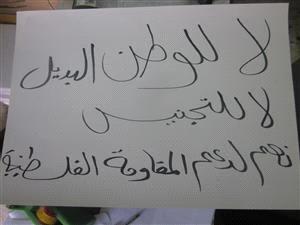 لا للوطن البديل
لا للتجنيس
نعم لدعم المقاومة الفلسطنية